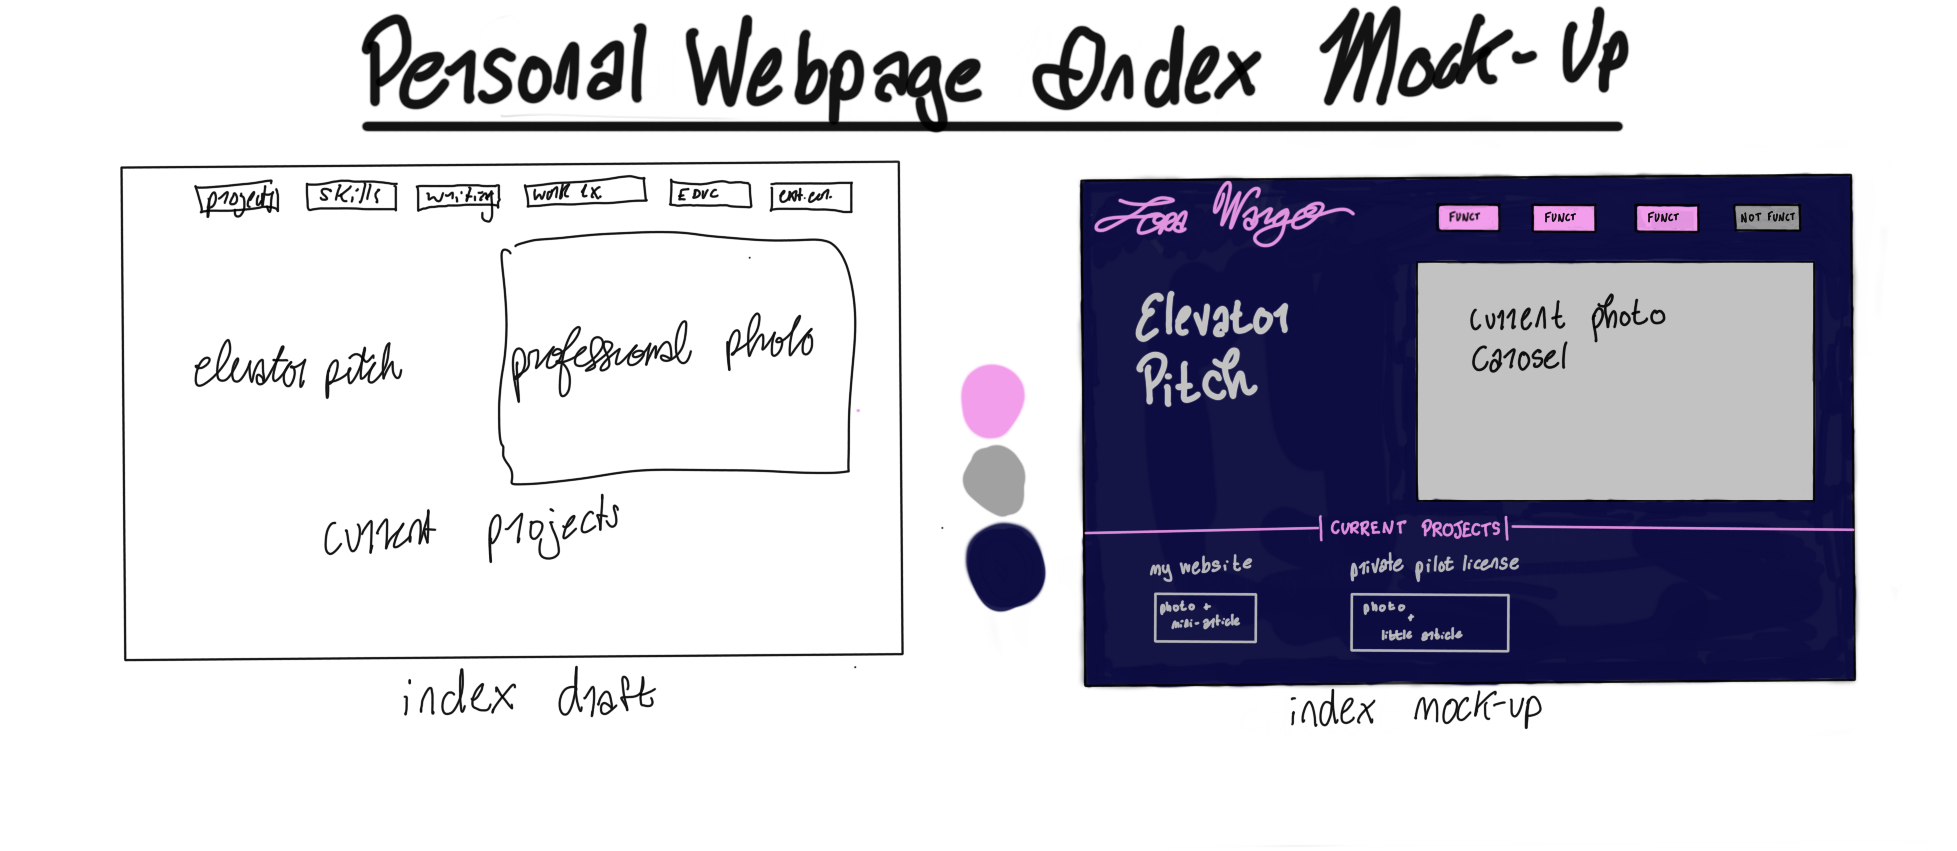 Personal Webpage Index Mock-Up
projects skills writing work ex EDUC ext.cur.
elevator pitch
professional photo
current projects
index draft
Lora Wargo
FUNCT FUNCT FUNCT NOT FUNCT
Elevator
Pitch
current photo
carosel
CURRENT PROJECTS
my website
photo +
mini-article
private pilot license
photo
+
little article
index mock-up